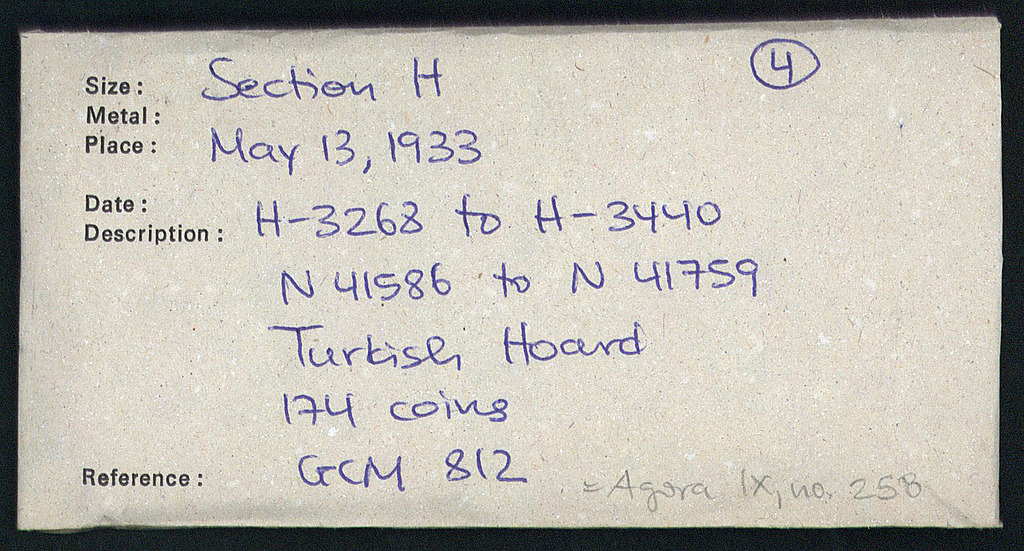 Size: Section H 4
Metal:
Place: May 13, 1933
Date:
Description: H-3268 to H-3440
N 41586 to N 41759
Turkish Hoard
174 coins
Reference: GCM 812 = Agora IX, no. 258